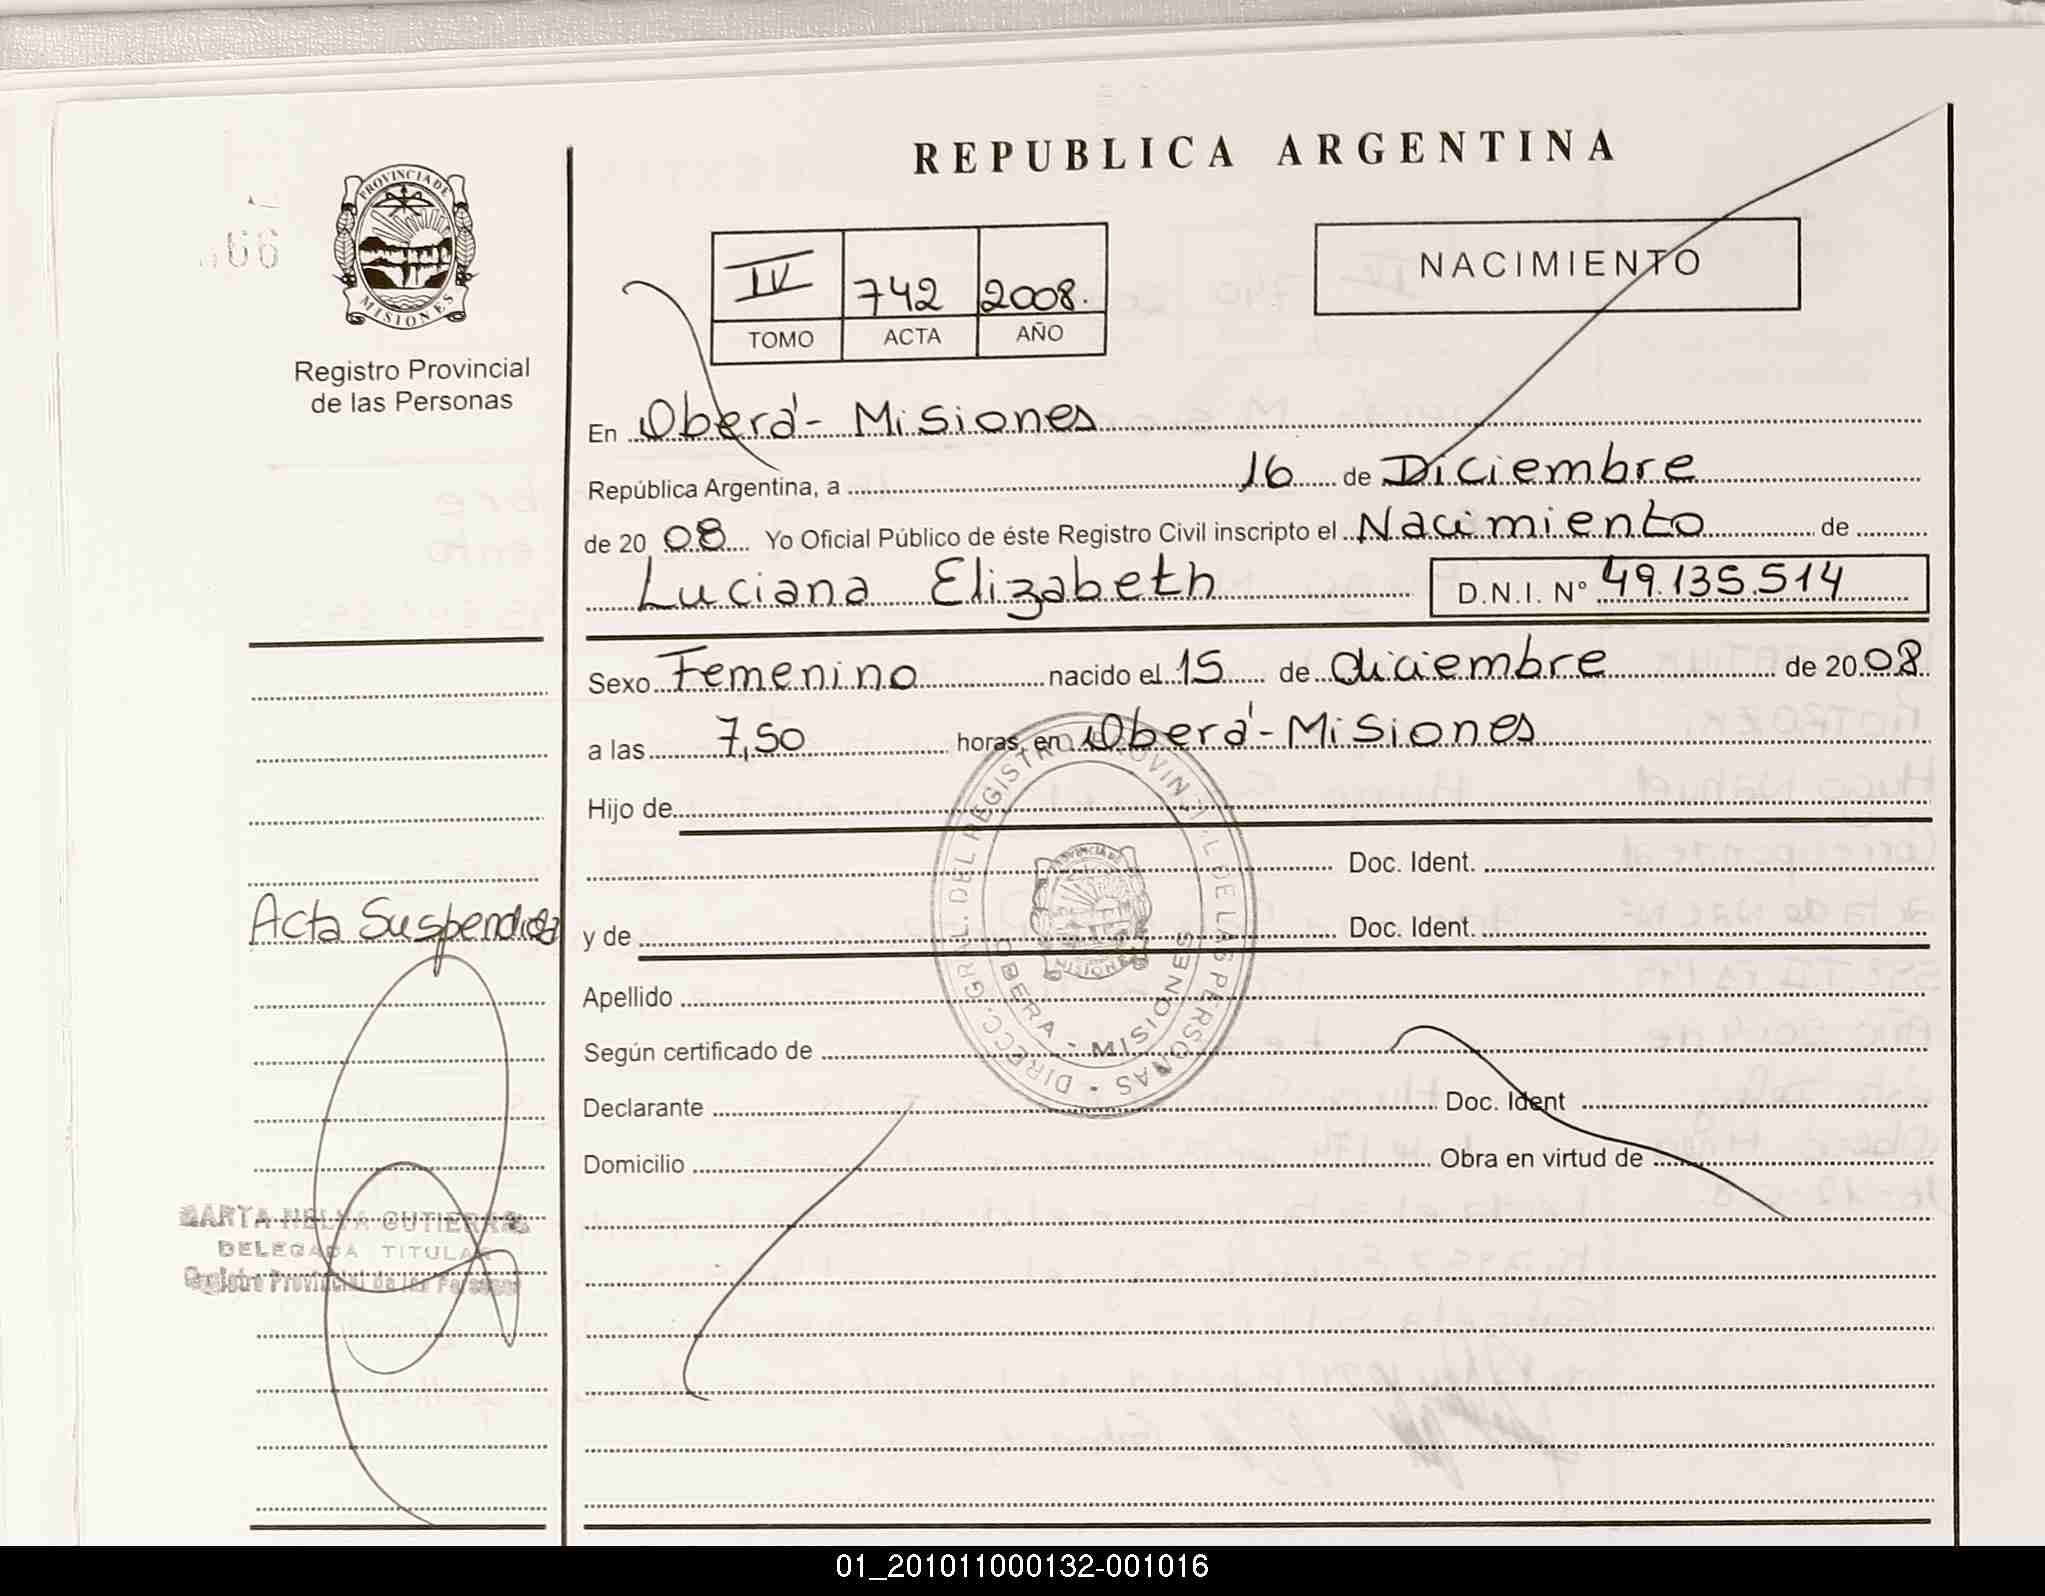 REPUBLICA ARGENTINA
PROVINCIA DE
MISIONES
Registro Provincial
de las Personas
IV 742 2008.
TOMO ACTA AÑO
NACIMIENTO
En Oberá - Misiones
República Argentina, a 16 de Diciembre
de 20 08 Yo Oficial Público de éste Registro Civil inscripto el Nacimiento de
Luciana Elizabeth D.N.I. Nº 49.135.514
Sexo Femenino nacido el 15 de diciembre de 20 08
a las 7,50 horas, en Oberá - Misiones
Hijo de
Doc. Ident.
y de Doc. Ident.
Apellido
Según certificado de
Declarante Doc. Ident
Domicilio Obra en virtud de
Acta Suspendida
DELEGADA TITULAR
Registro Provincial de las Personas
DIRECC. GRAL. DEL REGISTRO PROVINCIAL DE LAS PERSONAS
OBERA - MISIONES
01_201011000132-001016